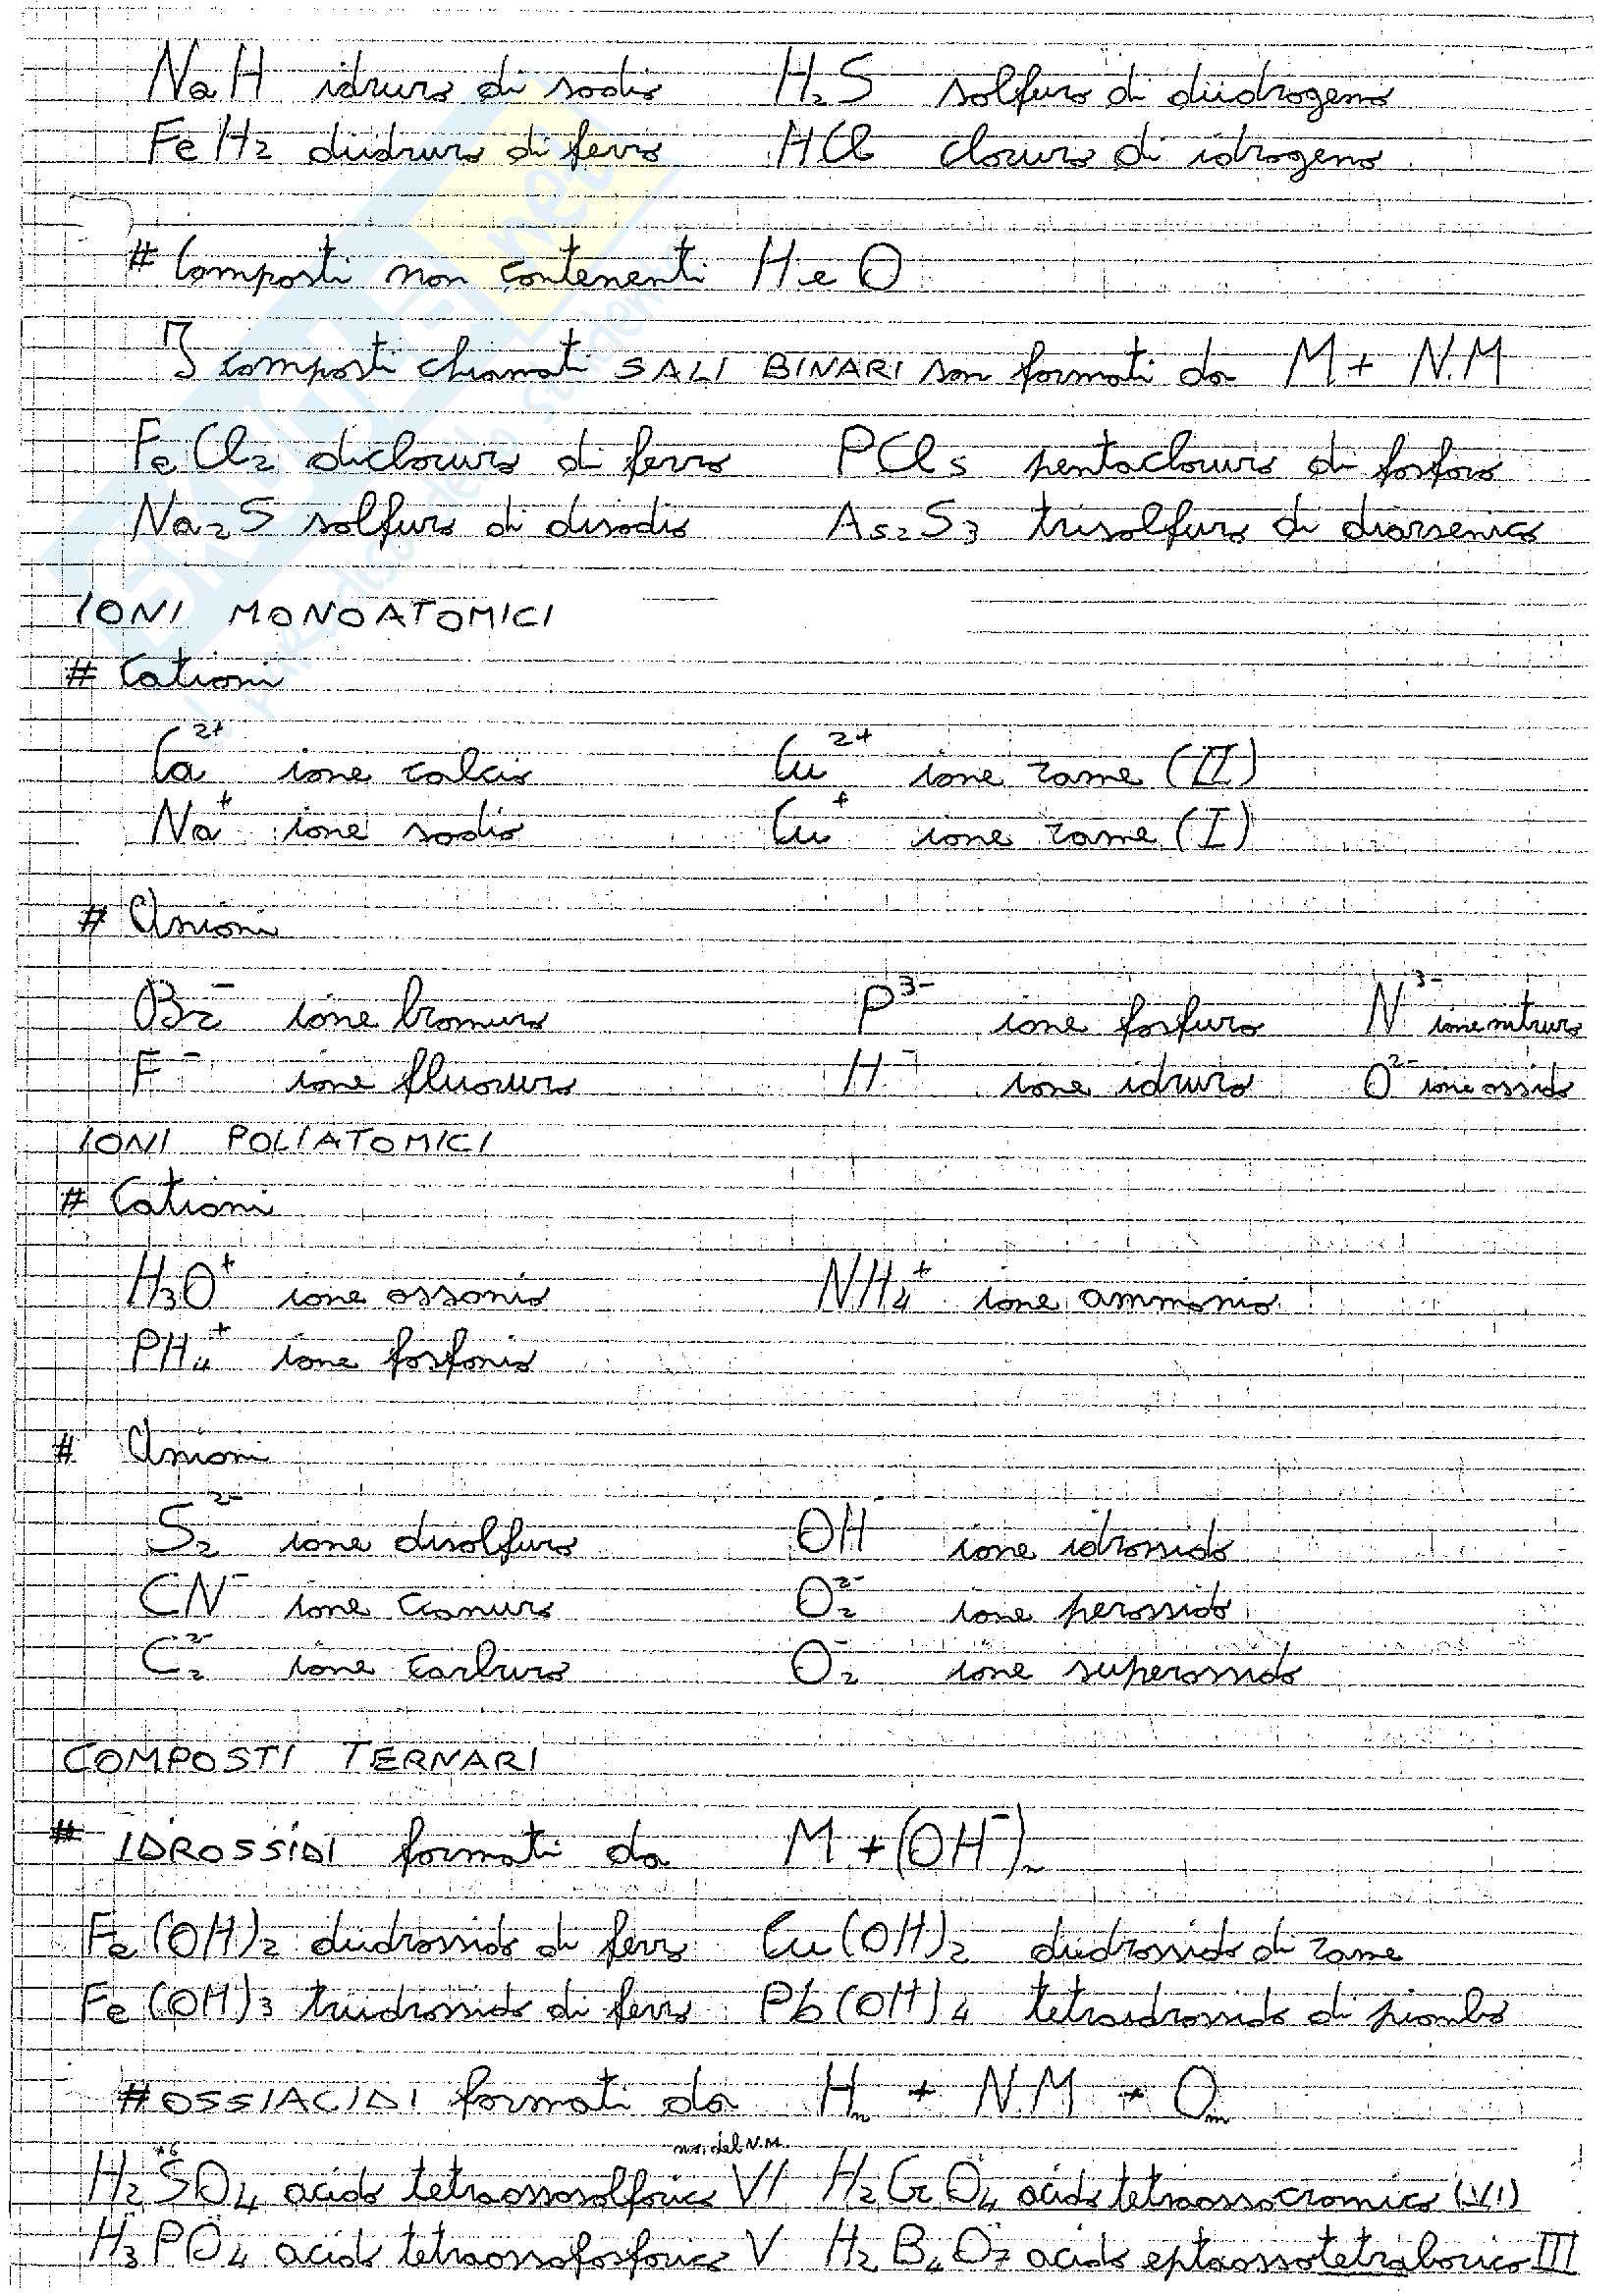 NaH idruro di sodio H₂S solfuro di diidrogeno
FeH₂ diidruro di ferro HCl cloruro di idrogeno
# Composti non contenenti H e O
I composti chiamati SALI BINARI son formati da M + N.M
FeCl₂ dicloruro di ferro PCl₅ pentacloruro di fosforo
Na₂S solfuro di disodio As₂S₃ trisolfuro di diarsenico
IONI MONOATOMICI
# Cationi
Ca²⁺ ione calcio Cu²⁺ ione rame (II)
Na⁺ ione sodio Cu⁺ ione rame (I)
# Anioni
Br⁻ ione bromuro P³⁻ ione fosfuro N³⁻ ione nitruro
F⁻ ione fluoruro H⁻ ione idruro O²⁻ ione ossido
IONI POLIATOMICI
# Cationi
H₃O⁺ ione ossonio NH₄⁺ ione ammonio
PH₄⁺ ione fosfonio
# Anioni
S₂²⁻ ione disolfuro OH⁻ ione idrossido
CN⁻ ione cianuro O₂²⁻ ione perossido
C₂²⁻ ione carburo O₂⁻ ione superossido
COMPOSTI TERNARI
# IDROSSIDI formati da M + (OH⁻)ₙ
Fe(OH)₂ diidrossido di ferro Cu(OH)₂ diidrossido di rame
Fe(OH)₃ triidrossido di ferro Pb(OH)₄ tetraidrossido di piombo
# OSSIACIDI formati da Hₙ + N.M + Oₘ
+6 n.o. del N.M.
H₂SO₄ acido tetraossosolforico VI H₂CrO₄ acido tetraossocromico (VI)
H₃PO₄ acido tetraossofosforico V H₂B₄O₇ acido eptaossotetraborico III